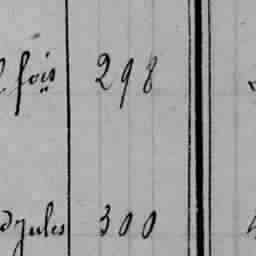 fois 298
Jules 300